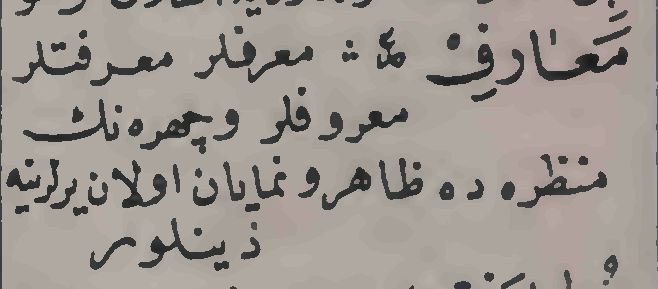 مَعَارِفْ ع معرفلر معرفتلر
معروفلر و چهره نك
منظره ده ظاهر و نمایان اولان یرلرینه
دینلور